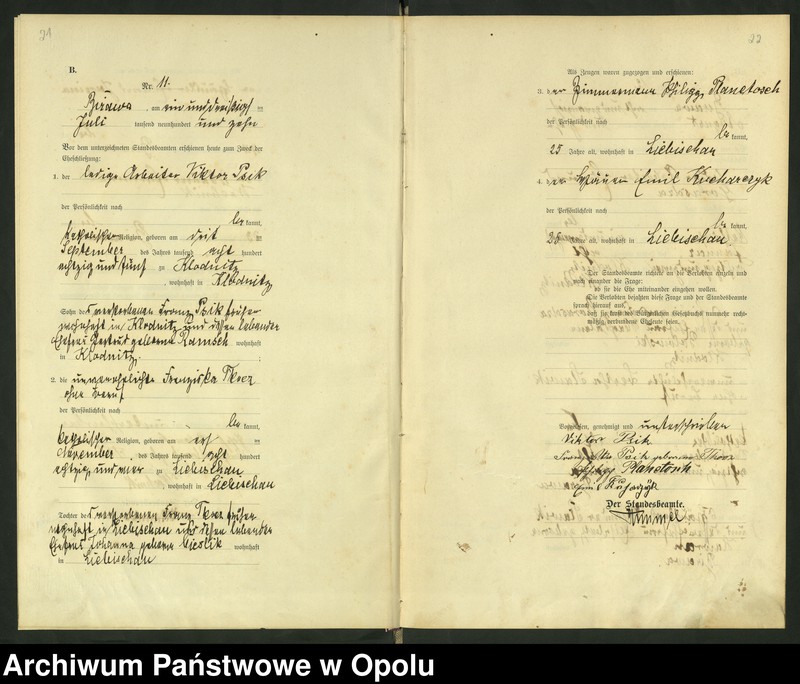 21
B.
Nr. 11.
Birawa, am einunddreißigs ten
Juli tausend neunhundert und zehn
Vor dem unterzeichneten Standesbeamten erschienen heute zum Zweck der
Eheschließung:
1. der ledige Arbeiter Viktor Psik
der Persönlichkeit nach
be kannt,
katholischer Religion, geboren am dritten
September des Jahres tausend acht hundert
achtzig und fünf zu Klodnitz
, wohnhaft in Klodnitz
Sohn des verstorbenen Franz Psik früher
wohnhaft in Klodnitz und dessen lebender
Ehefrau Gertrud geborene Ramsch wohnhaft
in Klodnitz.
2. die unverehelichte Franziska Tkocz
ohne Beruf
der Persönlichkeit nach
be kannt,
katholischer Religion, geboren am ersten
November, des Jahres tausend acht hundert
achtzig und vier zu Liebischau
, wohnhaft in Liebischau
Tochter des verstorbenen Franz Tkocz früher
wohnhaft in Liebischau und dessen lebender
Ehefrau Johanna geborene Cieslik wohnhaft
in Liebischau
22
Als Zeugen waren zugezogen und erschienen:
3. der Zimmermann Planetorsch
der Persönlichkeit nach
be kannt,
25 Jahre alt, wohnhaft in Liebischau
4. der Häuer Emil Kucharczyk
der Persönlichkeit nach
be kannt,
Jahre alt, wohnhaft in Liebischau
Der Standesbeamte richtete an die Verlobten einzeln und
nach einander die Frage:
ob sie die Ehe miteinander eingehen wollen.
Die Verlobten bejahten diese Frage und der Standesbeamte
sprach hierauf aus,
daß sie kraft des Bürgerlichen Gesetzbuchs nunmehr recht-
mäßig verbundene Eheleute seien.
Vorgelesen, genehmigt und unterschrieben
Viktor Psik
Franziska Psik geborene Tkocz
Planetorsch
Emil
Der Standesbeamte.
Himmel
Archiwum Państwowe w Opolu